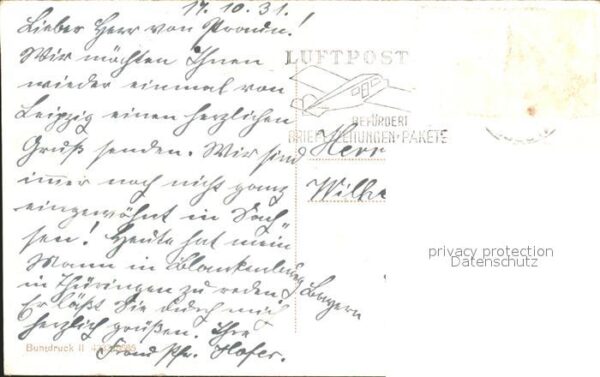 17.10.31.
Lieber Herr von
Wir möchten Ihnen
wieder einmal von
Leipzig einen herzlichen
Gruß senden. Wir sind
immer noch nicht ganz
eingewöhnt in Sach-
sen! Heute hat mein
Mann in Blankenburg
in Thüringen zu reden.
Er läßt Sie durch mich
herzlich grüßen. Ihre
Hofer.
Bayern
LUFTPOST
BEFÖRDERT
BRIEFE·ZEITUNGEN·PAKETE
Herr
Wilhe
privacy protection
Datenschutz
Buntdruck II